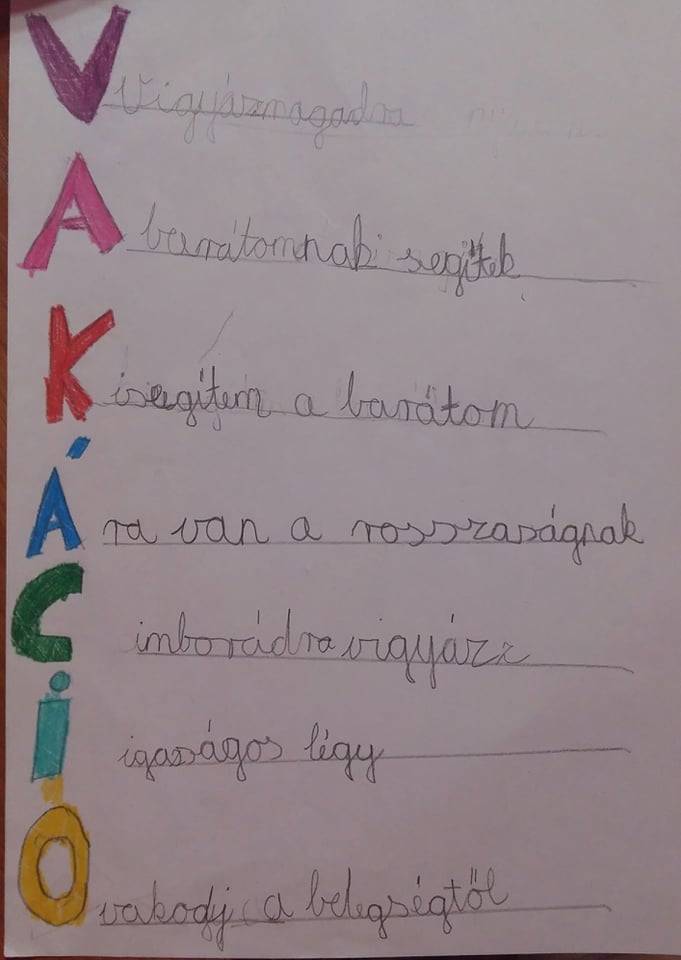 V vigyázmagadra
A barátomnak segitek
Kisegítem a barátom
Ára van a rosszaságnak
Cimborádra vigyázz
i igazságos légy
Ovakodj a betegségtől